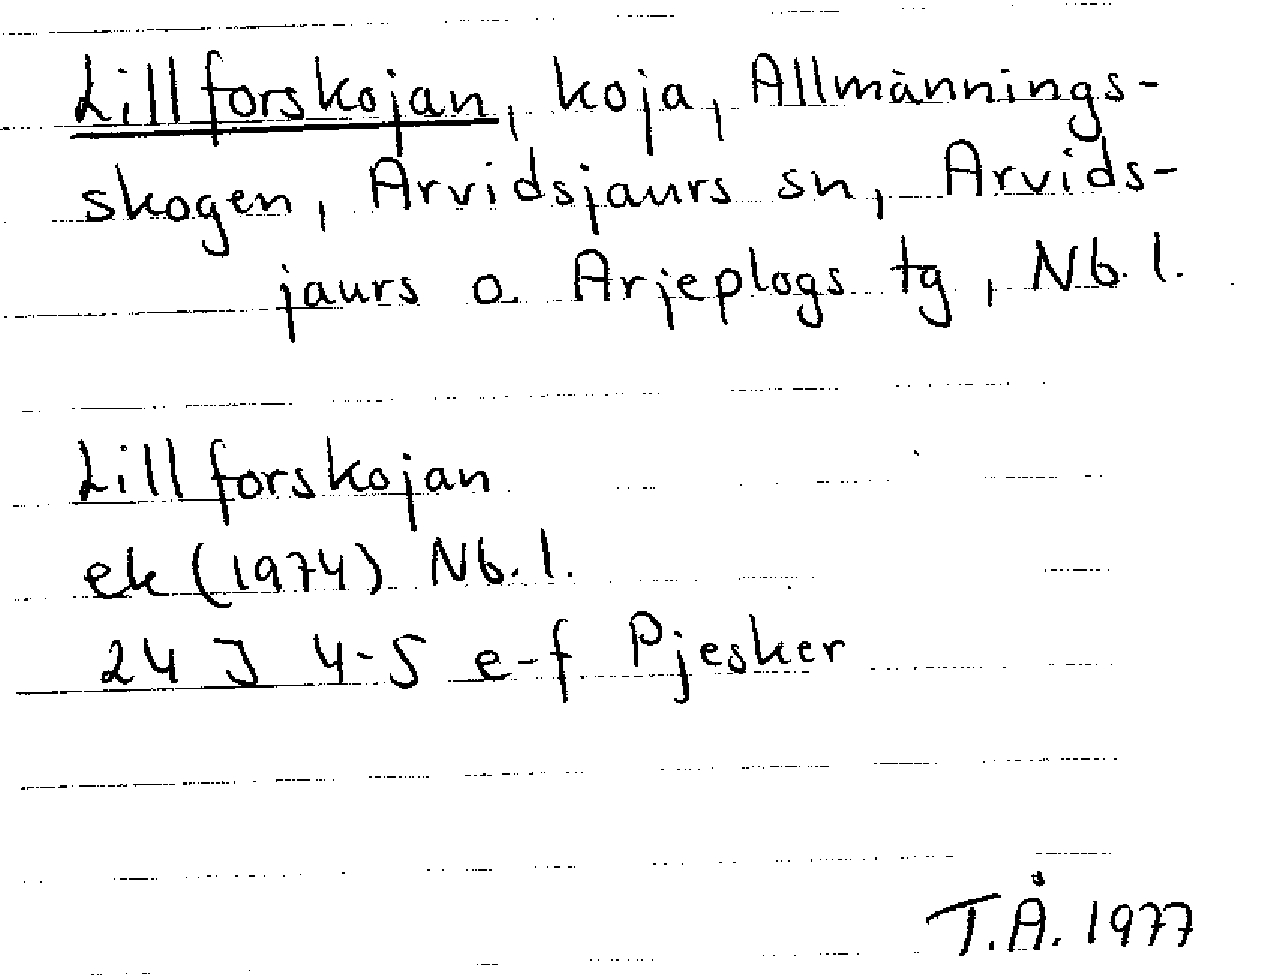 Lillforskojan, koja, Allmännings-
skogen, Arvidsjaurs sn, Arvids-
jaurs o Arjeplogs tg, Nb. l.
Lillforskojan
ek (1974) Nb. l.
24 J 4-5 e-f Pjesker
T.Å. 1977